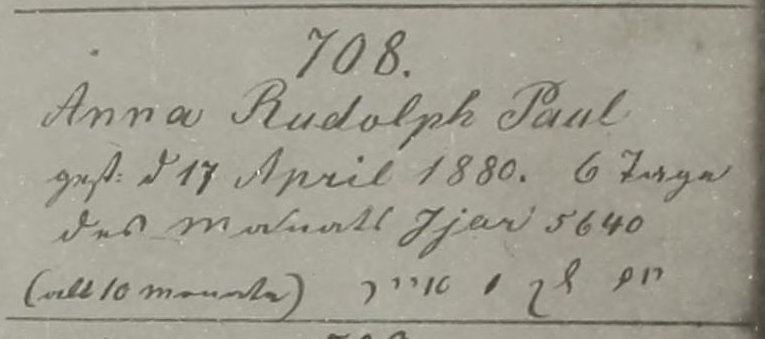 708.
Anna Rudolph Paul
gest: d 17 April 1880. 6 Tage
des Monats Jjar 5640
(alt 10 Monate) יום שק ו אייר